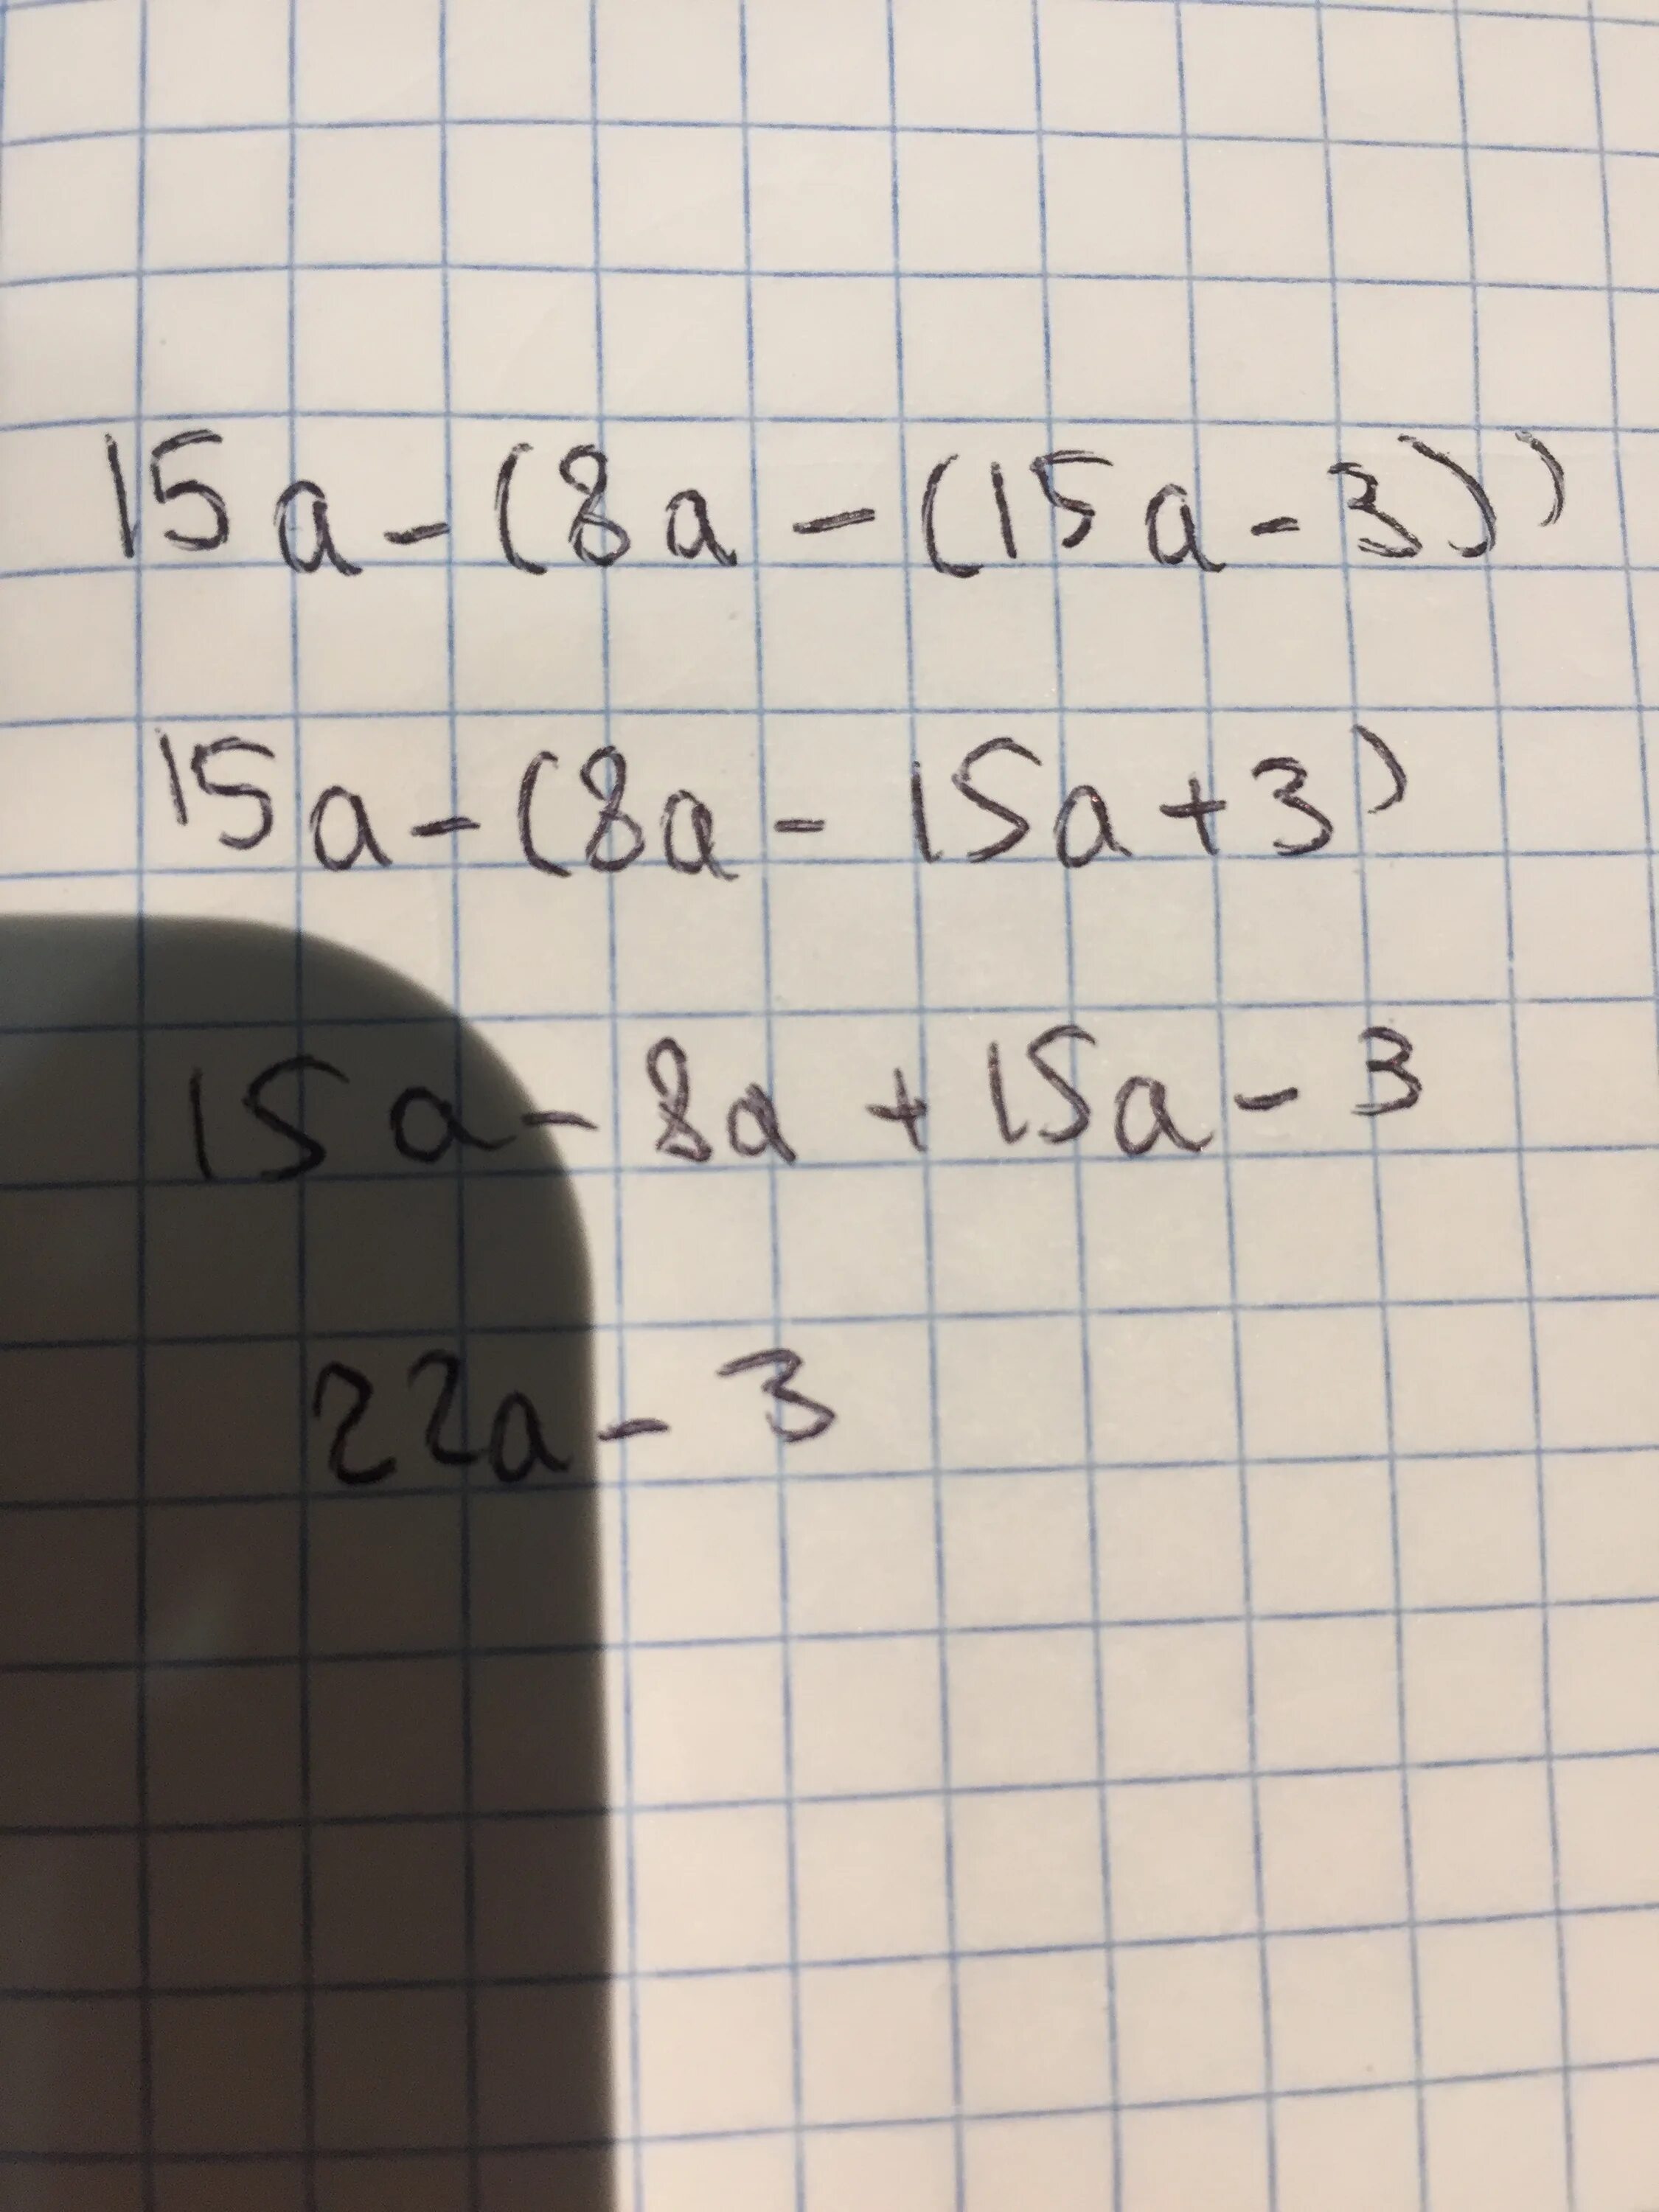 15a-(8a-(15a-3))
15a-(8a-15a+3)
15a-8a+15a-3
22a-3